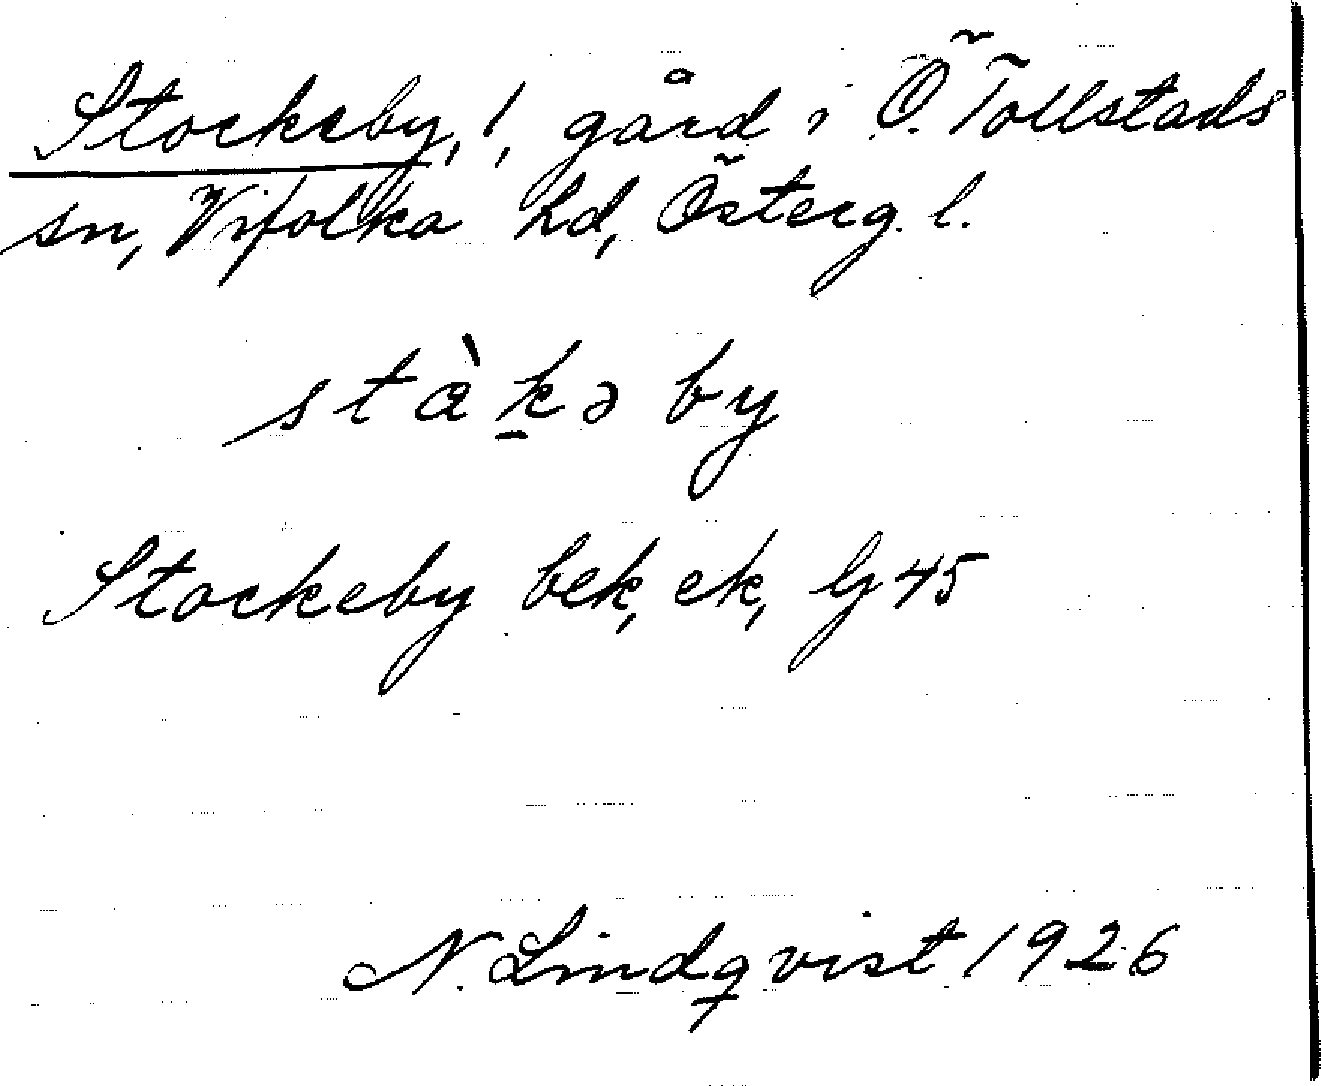 Stockeby, 1, gård i Ö. Tollstads
sn, Vifolka hd, Österg. l.
stàkə by
Stockeby bek, ek, Gj 45
N. Lindqvist 1926